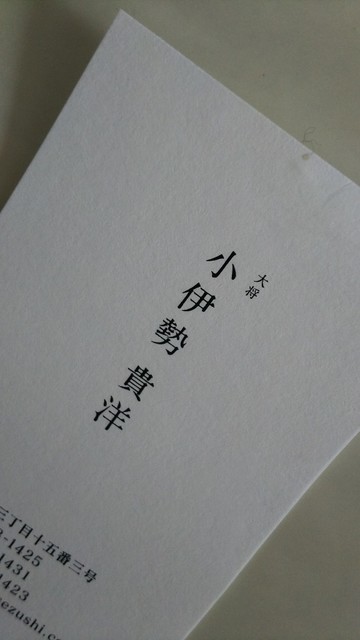 大将
小伊勢 貴洋
三丁目十五番三号
-1425
1431
1423
ezushi.c